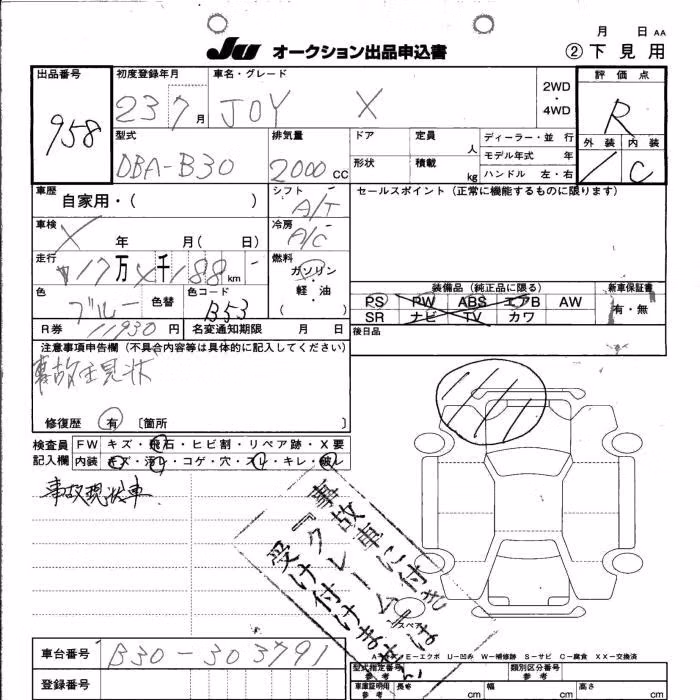 月 日 AA
JU オークション出品申込書 ② 下見用
出品番号 初度登録年月 車名・グレード 2WD ・ 4WD 評価点
958 23 7月 JOY X R
型式 排気量 ドア 定員 人 ディーラー・並 行 外装 内装
DBA-B30 2000 CC 形状 積載 kg モデル年式 年 / C
ハンドル 左・右
車歴 自家用・( ) シフト A/T セールスポイント(正常に機能するものに限ります)
車検 X 年 月( 日) 冷房 A/C
走行 万 千 188 km 燃料 ガソリン・軽・油 ( )
装備品(純正品に限る) 新車保証書
色 ブルー 色替 色コード B53 PS PW ABS エアB AW 有・無
SR ナビ TV カワ
R券 11930 円 名変通知期限 月 日 後日品
注意事項申告欄(不具合内容等は具体的に記入してください)
事故 現状
修復歴 有 〔箇所 〕
検査員 FW キズ・飛石・ヒビ割・リペア跡・X要
記入欄 内装 キズ・汚レ・コゲ・穴・スレ・キレ・破レ
事故現状車
事故車に付き
『クレーム』は
受け付けません
スペア
A E-エクボ U-凹み W-補修跡 S-サビ C-腐食 XX-交換済
車台番号 B30-303791 型式指定番号 参考 類別区分番号 参考
登録番号 車庫証明用 参考 長さ cm 幅 cm 高さ cm